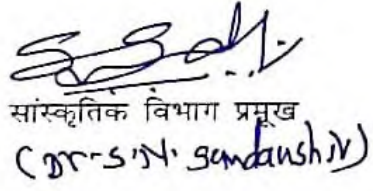 सांस्कृतिक विभाग प्रमूख
(Dr-S.N. Sumdanshiv)